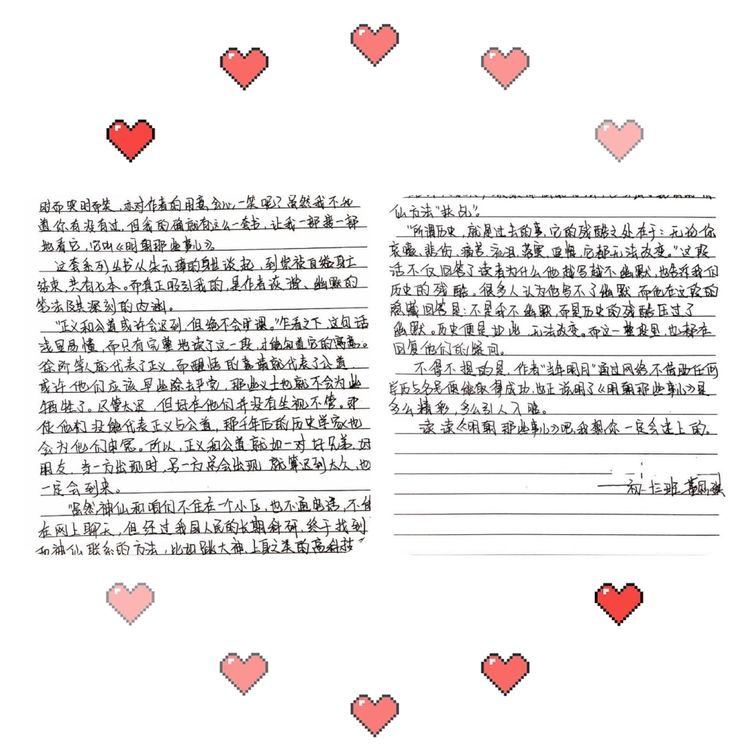 时而哭时而笑，亦对作者的用意会心一笑呢？虽然我不知
道你有没有过，但我的确就有这么一套书，让我一部接一部
地看它，它叫《明朝那些事儿》。
这套系列丛书从朱元璋的身世谈起，到崇祯自缢身亡
结束，共有七本。而真正吸引我的，是作者诙谐、幽默的
笔法及其深刻的内涵。
"正义和公道或许会迟到，但绝不会旷课。"作者之下这句话
浅显易懂，而只有完整地读了这一段，才能知道它的寓意。
徐阶等人就代表了正义，而
就代表了公道
或许他们应该早些除去严党，那些义士也就不会为此
牺牲了。尽管太迟，但好在他们并没有坐视不管。即
使他们没能代表正义与公道，那千年后的历史学家也
会为他们申冤。所以，正义和公道就如一对好兄弟、好
朋友，当一方出现时，另一方总会出现，就算迟到太久，也
一定会到来。
"虽然神仙和咱们不住在一个小区，也不通电话，不能
在网上聊天，但经过我国人民的长期科研，终于找到
和神仙联系的方法，比如跳大神、上身之类的高科技"
仙方法"扶乩"。
"所谓历史，就是过去的事，它的残酷之处在于：无论你
哀嚎、悲伤、痛苦、流泪、落寞、追悔，它都无法改变。"这段
话不仅回答了读者为什么他越写越不幽默，也告诉我们
历史的残酷。很多人认为他写不了幽默，而他在这段的
回答是：不是我不幽默，而是历史的残酷压过了
幽默。历史便是如此，无法改变。而这一
里，也都在
回复他们的疑问。
不得不提的是，作者"当年明月"通过网络，不借助任何
学历与名号便能取得成功，也正说明了《明朝那些事儿》是
多么精彩，多么引人入胜。
读读《明朝那些事儿》吧，我想你一定会迷上的。